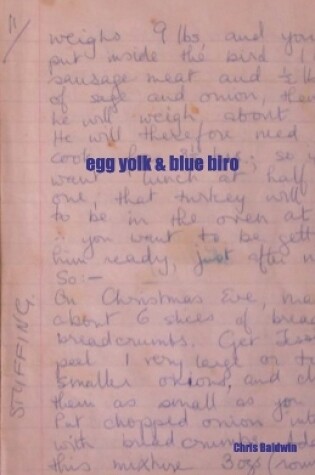 11
weighs 9 lbs, and you
put inside the bird 1
sausage meat and ½ lb
of sage and onion, then
he will weigh about
He will therefore need
egg yolk & blue biro
coo
want lunch at half
one, that turkey will
to be in the oven at
∴ you want to be gett
him ready, just after
So:-
On Christmas Eve, ma
about 6 slices of bread
breadcrumbs. Get
peel 1 very large or t
smaller onions, and c
them as small as you
Put chopped onion int
with breadcrumbs. Ad
this mixture
STUFFING.
Chris Baldwin